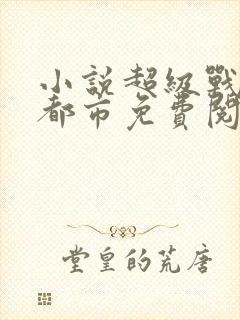 小說超級戰
都市免費閱
堂皇的荒唐